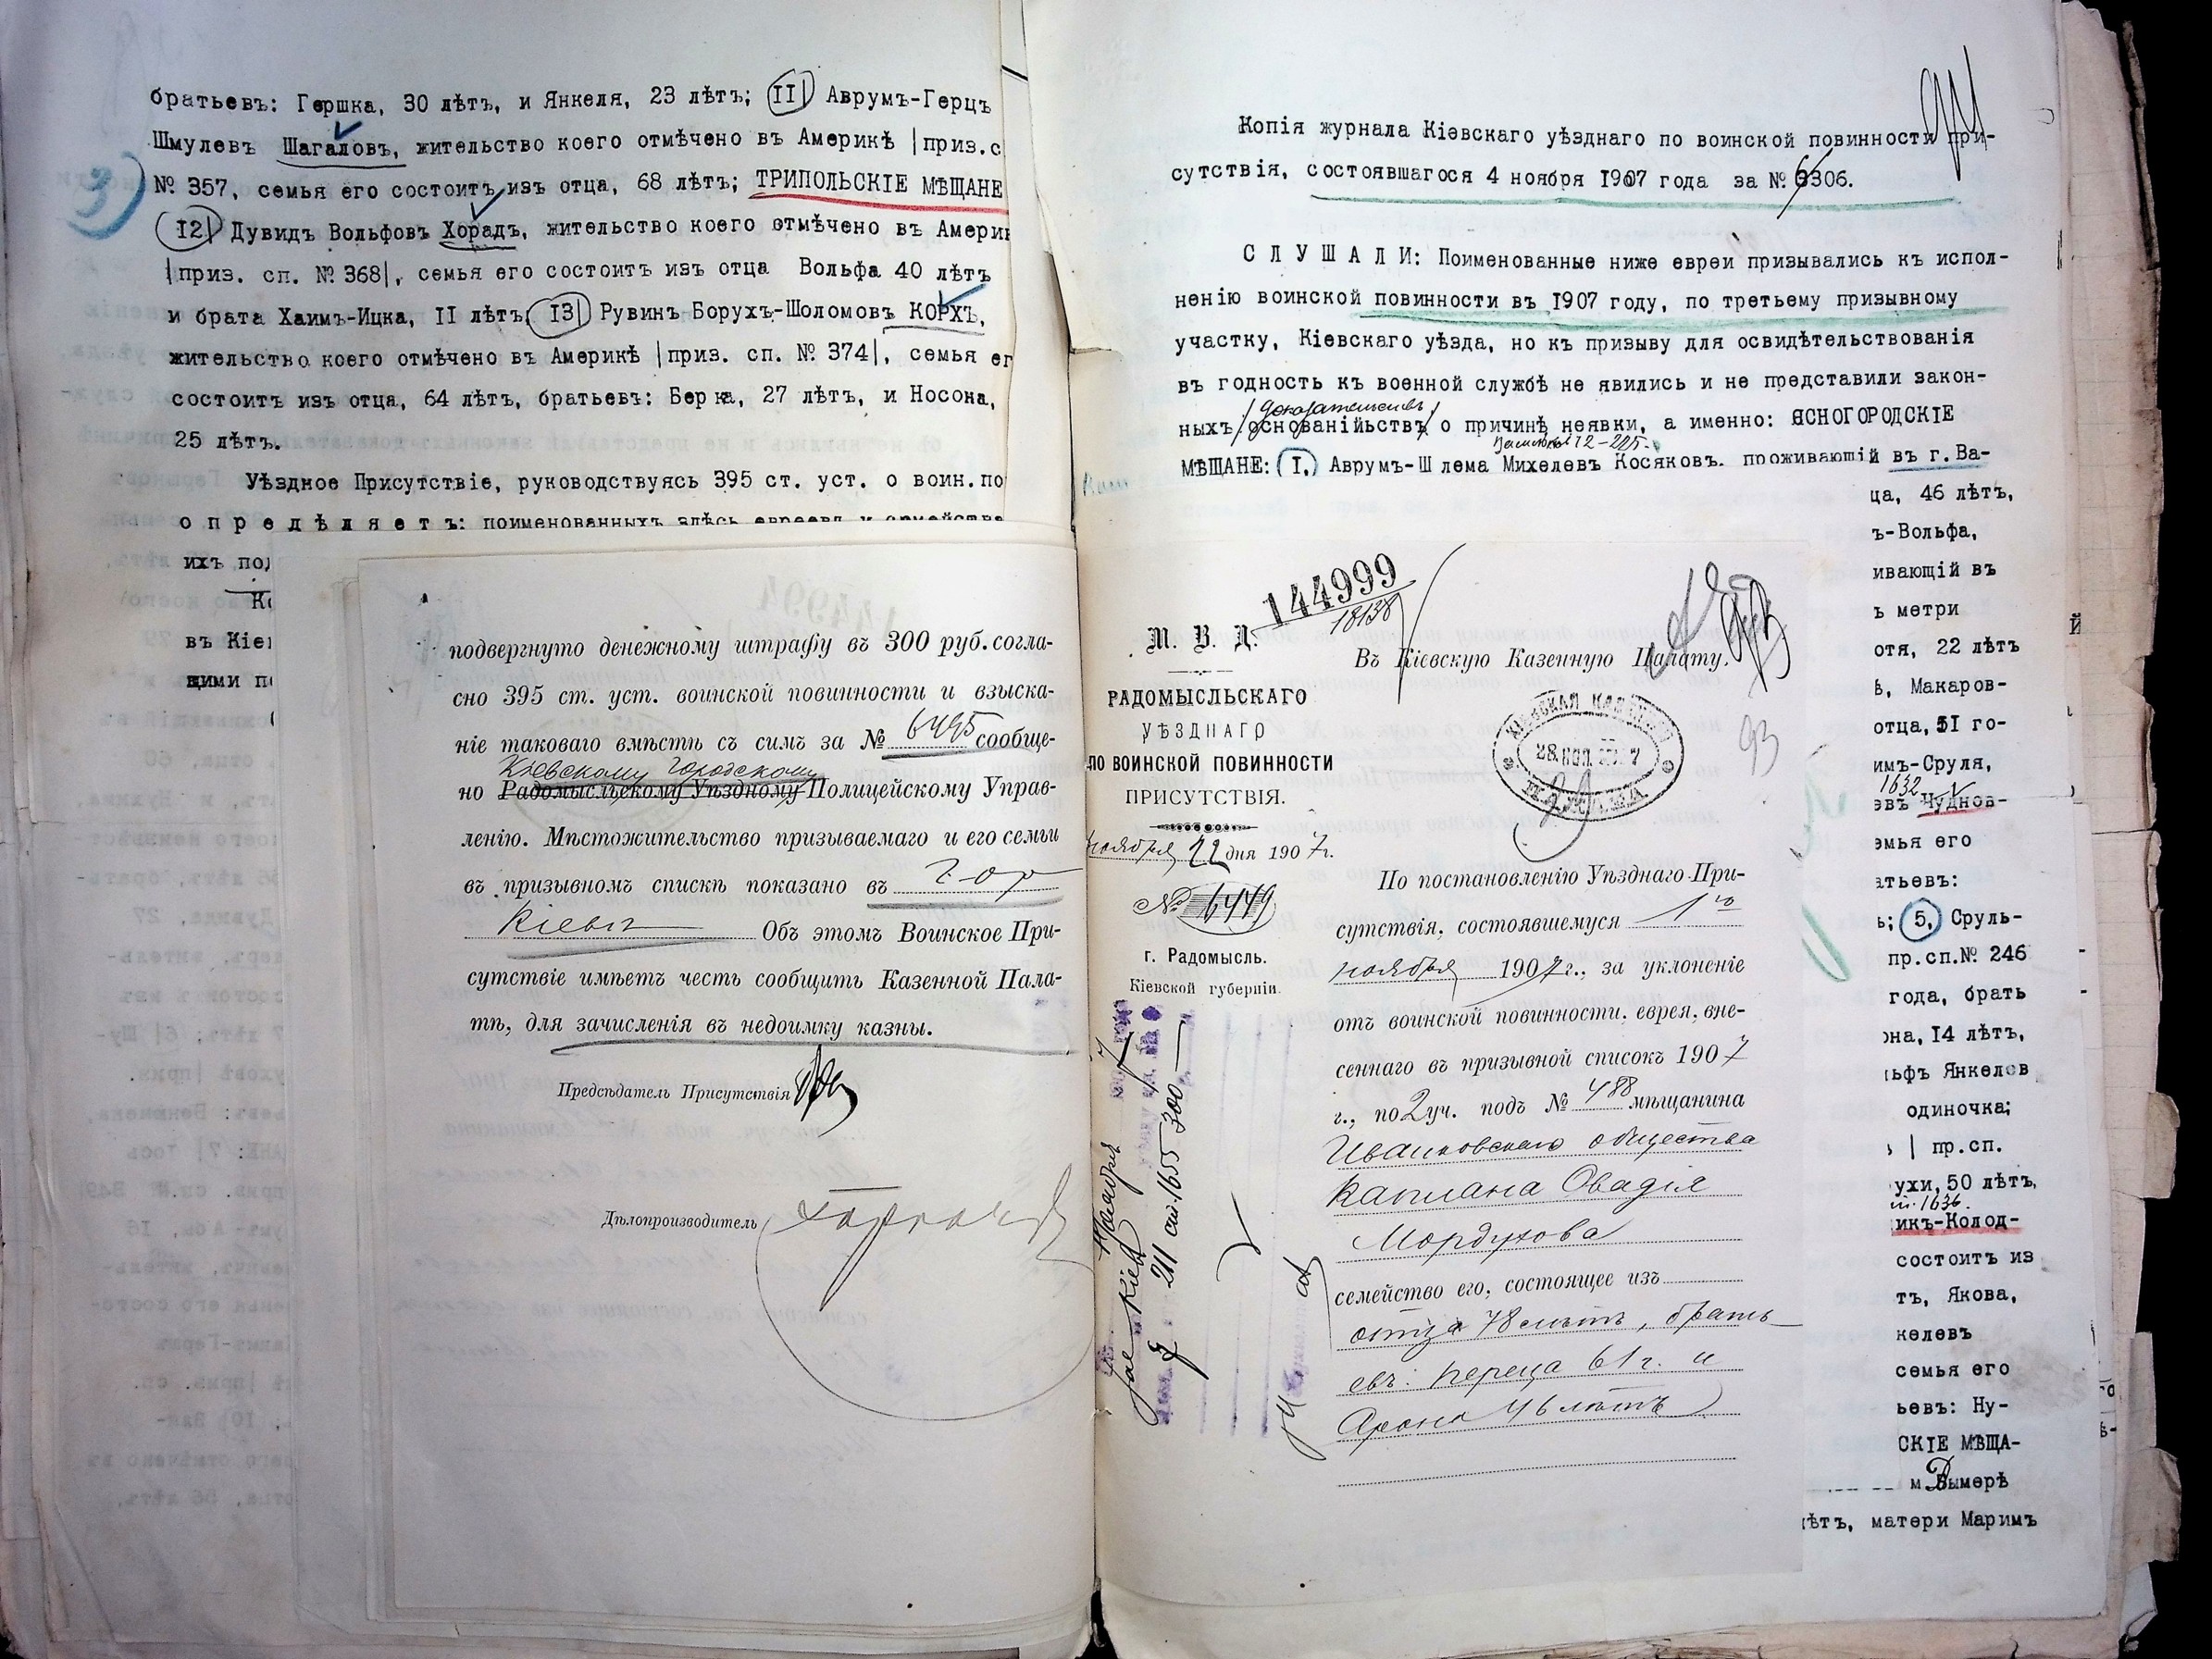 братьевъ: Гершка, 30 лѣтъ, и Янкеля, 23 лѣтъ; II| Аврумъ-Герцъ
Шмулевъ Шагаловъ, жительство коего отмѣчено въ Америкѣ |приз.с
№ 357, семья его состоитъ изъ отца, 68 лѣтъ; ТРИПОЛЬСКІЕ МѢЩАНЕ
3)
I2| Дувидъ Вольфовъ Хорадъ, жительство коего отмѣчено въ Амери
|приз. сп. № 368|, семья его состоитъ изъ отца Вольфа 40 лѣтъ
и брата Хаимъ-Ицка, II лѣтъ, I3| Рувинъ Борухъ-Шоломовъ КОРХЪ,
жительство коего отмѣчено въ Америкѣ |приз. сп. № 374|, семья ег
состоитъ изъ отца, 64 лѣтъ, братьевъ: Берка, 27 лѣтъ, и Носона,
25 лѣтъ.
Уѣздное Присутствіе, руководствуясь 395 ст. уст. о воин.по
о п р е д ѣ л я е т ъ: поименованныхъ здѣсь евреевъ и семейства
ихъ под
въ Кіев
щими п
подвергнуто денежному штрафу въ 300 руб. согла-
сно 395 ст. уст. воинской повинности и взыска-
ніе таковаго вмѣстѣ съ симъ за № 6495 сообще-
Кіевскому Городскому
но Радомысльскому Уѣздному Полицейскому Управ-
ленію. Мѣстожительство призываемаго и его семьи
въ призывномъ спискѣ показано въ гор
Кіевѣ Объ этомъ Воинское При-
сутствіе имѣетъ честь сообщить Казенной Пала-
тѣ, для зачисленія въ недоимку казны.
Предсѣдатель Присутствія
Дѣлопроизводитель
Копія журнала Кіевскаго уѣзднаго по воинской повинности при-
сутствія, состоявшагося 4 ноября 1907 года за № 6306.
С Л У Ш А Л И: Поименованные ниже евреи призывались къ испол-
ненію воинской повинности въ 1907 году, по третьему призывному
участку, Кіевскаго уѣзда, но къ призыву для освидѣтельствованія
въ годность къ военной службѣ не явились и не представили закон-
доказательствъ
ныхъ основанійьствъ о причинѣ неявки, а именно: ЯСНОГОРОДСКІЕ
МѢЩАНЕ: I. Аврумъ-Шлема Михелевъ Косяковъ. проживающій въ г. Ва-
ца, 46 лѣтъ,
ъ-Вольфа,
ивающій въ
ъ метри
отя, 22 лѣтъ
ѣ, Макаров-
отца, 51 го-
имъ-Сруля,
1632
евъ Чуднов-
емья его
атьевъ:
ь; 5, Сруль-
пр.сп.№ 246
года, братъ
она, I4 лѣтъ,
ьфъ Янкелев
одиночка;
| пр.сп.
ухи, 50 лѣтъ,
1636
икъ-Колод-
состоитъ из
тъ, Якова,
келевъ
семья его
ьевъ: Ну-
СКІЕ МѢЩА-
м Дымерѣ
лѣтъ, матери Маримъ
144999
18138
М. В. Д.
РАДОМЫСЛЬСКАГО
УѢЗДНАГО
ПО ВОИНСКОЙ ПОВИННОСТИ
ПРИСУТСТВІЯ.
ноября 22 дня 1907г.
№ 6449
г. Радомысль.
Кіевской губерніи.
Въ Кіевскую Казенную Палату.
КІЕВСКАЯ КАЗЕННАЯ
28. НОЯ. 1907
ПАЛАТА
93
По постановленію Уѣзднаго При-
сутствія, состоявшемуся 1го
ноября 1907г., за уклоненіе
отъ воинской повинности, еврея, вне-
сеннаго въ призывной списокъ 1907
г., по 2 уч. подъ № 488 мѣщанина
Иванковскаго общества
Каплана Овадія
Мордухова
семейство его, состоящее изъ
отца 78 лѣтъ, брать-
евъ: Переца 61 г. и
Арона 46 лѣтъ
ноября 1907 года
211 ст. 1655 300